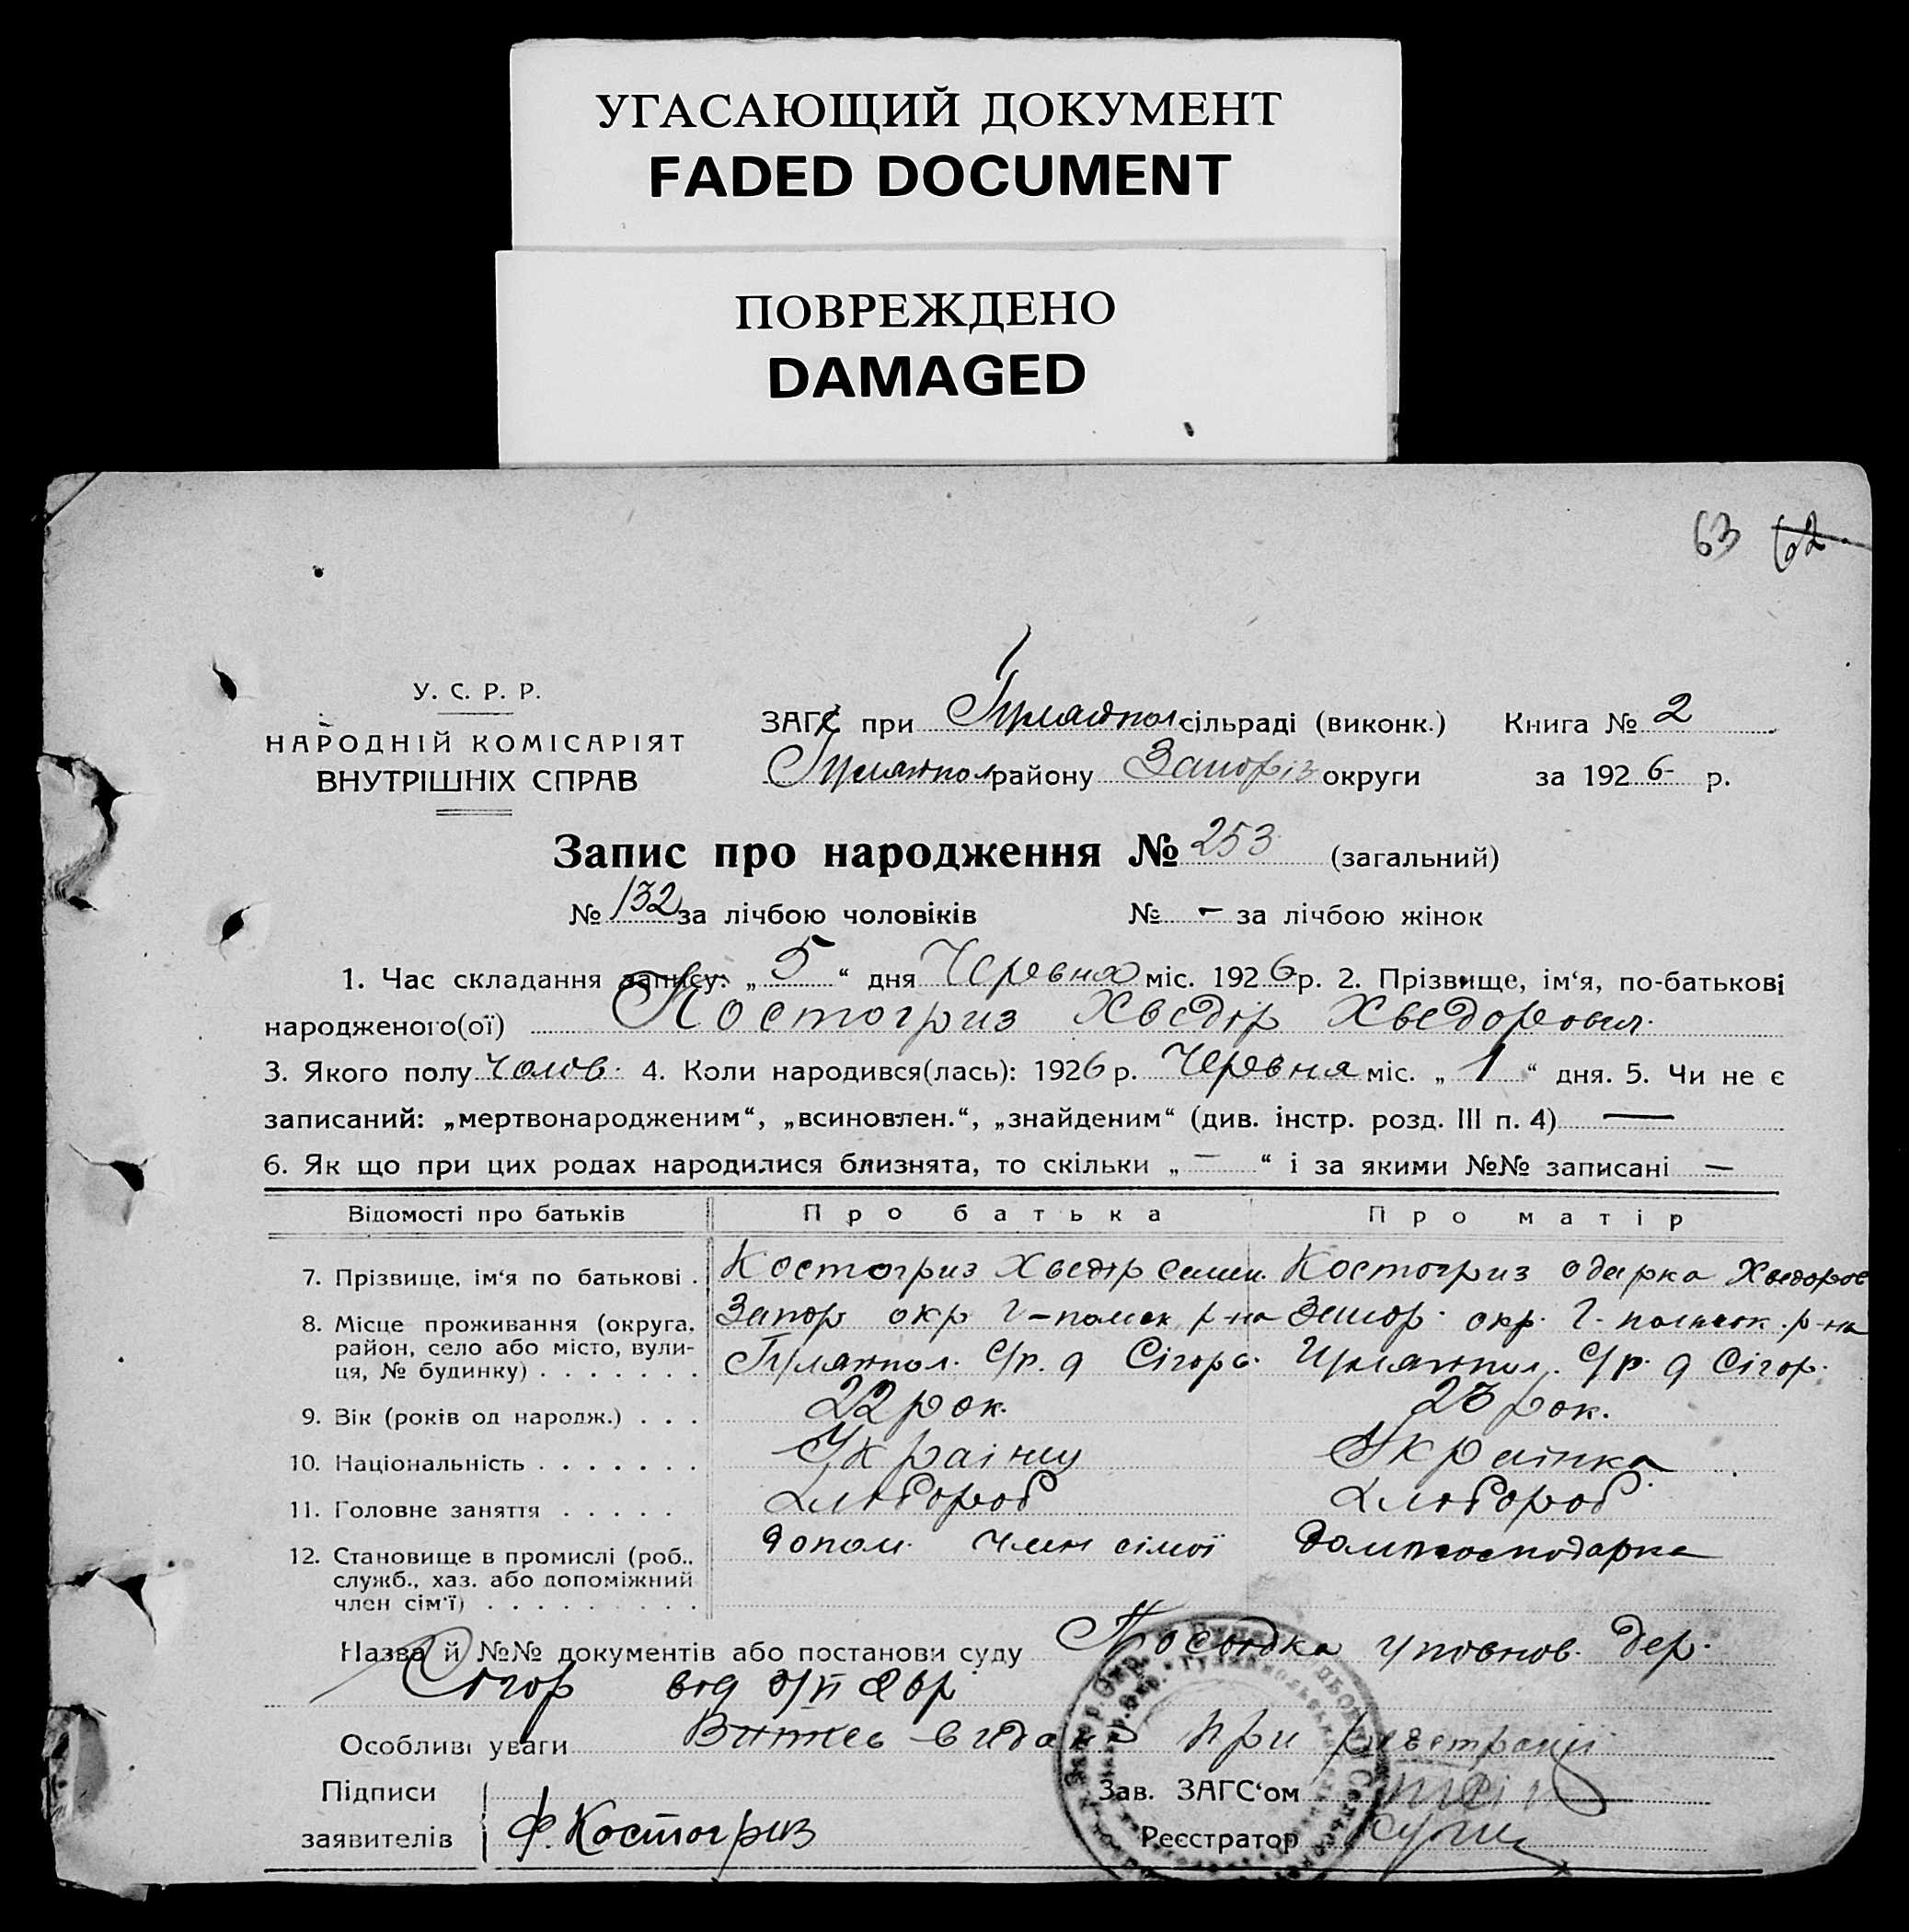 УГАСАЮЩИЙ ДОКУМЕНТ
FADED DOCUMENT
ПОВРЕЖДЕНО
DAMAGED
63 62
У. С. Р. Р.
НАРОДНІЙ КОМІСАРІЯТ
ВНУТРІШНІХ СПРАВ
ЗАГС при Гуляйпол сільраді (виконк.) Книга № 2
Гуляйпол району Запоріз округи за 1926 р.
Запис про народження № 253 (загальний)
№ 132 за лічбою чоловіків № - за лічбою жінок
1. Час складання запису: „5“ дня Червня міс. 1926 р. 2. Прізвище, ім‘я, по-батькові
народженого(ої) Костогриз Хведір Хведорович
3. Якого полу чолов. 4. Коли народився(лась): 1926 р. Червня міс. „1“ дня. 5. Чи не є
записаний: „мертвонародженим“, „всиновлен.“, „знайденим“ (див. інстр. розд. III п. 4) —
6. Як що при цих родах народилися близнята, то скільки „—“ і за якими №№ записані —
Відомості про батьків Про батька Про матір
7. Прізвище, ім‘я по батькові . Костогриз Хведір Семен. Костогриз Одарка Хведоров
8. Місце проживання (округа, Запор окр Г-польск р-на Запор. окр. Г-польськ. р-на
район, село або місто, вули-
ця, № будинку) . . . . . . . Гуляйпол. С/р. д Сігорь. Гуляйпол. С/р. д Сігор.
9. Вік (років од народж.) . . . 22 рок. 23 рок.
10. Національність . . . . . . . Українц Українка
11. Головне заняття . . . . . Хлібороб Хлібороб
12. Становище в промислі (роб., допом. член сімої Домогосподарка
служб., хаз. або допоміжний
член сім‘ї) . . . . . . . . .
Назва й №№ документів або постанови суду Посвідка уповнов. дер.
Сігор від
Особливі уваги Витяг видано при реєстрації
Підписи Зав. ЗАГС‘ом
заявителів Ф. Костогриз Реєстратор